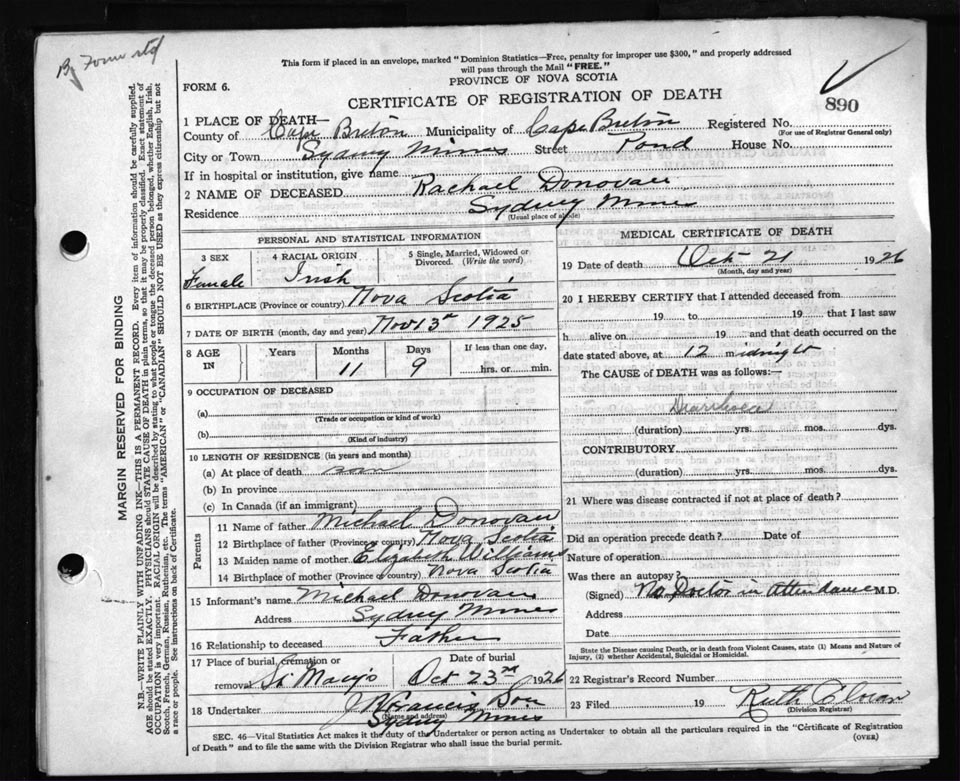 By Form std
This form if placed in an envelope, marked "Dominion Statistics—Free, penalty for improper use $300," and properly addressed
will pass through the Mail "FREE."
PROVINCE OF NOVA SCOTIA
FORM 6.
CERTIFICATE OF REGISTRATION OF DEATH
890
1 PLACE OF DEATH—
County of Cape Breton Municipality of Cape Breton Registered No.
(For use of Registrar General only)
City or Town Sydney Mines Street Pond House No.
If in hospital or institution, give name
2 NAME OF DECEASED Rachael Donovan
Residence Sydney Mines
(Usual place of abode)
PERSONAL AND STATISTICAL INFORMATION
3 SEX 4 RACIAL ORIGIN 5 Single, Married, Widowed or Divorced. (Write the word)
Female Irish
6 BIRTHPLACE (Province or country) Nova Scotia
7 DATE OF BIRTH (month, day and year) Nov 13th 1925
8 AGE IN Years Months Days If less than one day,
11 9 hrs. or min.
9 OCCUPATION OF DECEASED
(a)
(Trade or occupation or kind of work)
(b)
(Kind of industry)
10 LENGTH OF RESIDENCE (in years and months)
(a) At place of death
(b) In province
(c) In Canada (if an immigrant)
Parents
11 Name of father Michael Donovan
12 Birthplace of father (Province or country) Nova Scotia
13 Maiden name of mother Elizabeth Williams
14 Birthplace of mother (Province or country) Nova Scotia
15 Informant's name Michael Donovan
Address Sydney Mines
16 Relationship to deceased Father
17 Place of burial, cremation or removal St Marys Date of burial Oct 23rd 1926
18 Undertaker J N Francis Son
(Name and address)
Sydney Mines
MEDICAL CERTIFICATE OF DEATH
19 Date of death Oct 21 1926
(Month, day and year)
20 I HEREBY CERTIFY that I attended deceased from
19 to 19 that I last saw
h alive on 19 and that death occurred on the
date stated above, at 12 midnight
The CAUSE of DEATH was as follows:—
Diarrhoea
(duration) yrs. mos. dys.
CONTRIBUTORY
(duration) yrs. mos. dys.
21 Where was disease contracted if not at place of death?
Did an operation precede death? Date of
Nature of operation
Was there an autopsy?
(Signed) No Doctor in Attendance M.D.
Address
Date
State the Disease causing Death, or in death from Violent Causes, state (1) Means and Nature of
Injury, (2) whether Accidental, Suicidal or Homicidal.
22 Registrar's Record Number
23 Filed 19 Ruth
(Division Registrar)
SEC. 46—Vital Statistics Act makes it the duty of the Undertaker or person acting as Undertaker to obtain all the particulars required in the "Certificate of Registration
of Death" and to file the same with the Division Registrar who shall issue the burial permit. (OVER)
MARGIN RESERVED FOR BINDING
N.B.—WRITE PLAINLY WITH UNFADING INK—THIS IS A PERMANENT RECORD. Every item of information should be carefully supplied.
AGE should be stated EXACTLY. PHYSICIANS should STATE CAUSE OF DEATH in plain terms, so that it may be properly classified. Exact statement of
OCCUPATION is very important. RACIAL ORIGIN will be described by stating to what people or tongue, the deceased person belonged, whether English, Irish,
Scotch, French, German, Russian, Ruthenian, etc. The terms "AMERICAN" or "CANADIAN" SHOULD NOT BE USED as they express citizenship but not
a race or people. See instructions on back of Certificate.